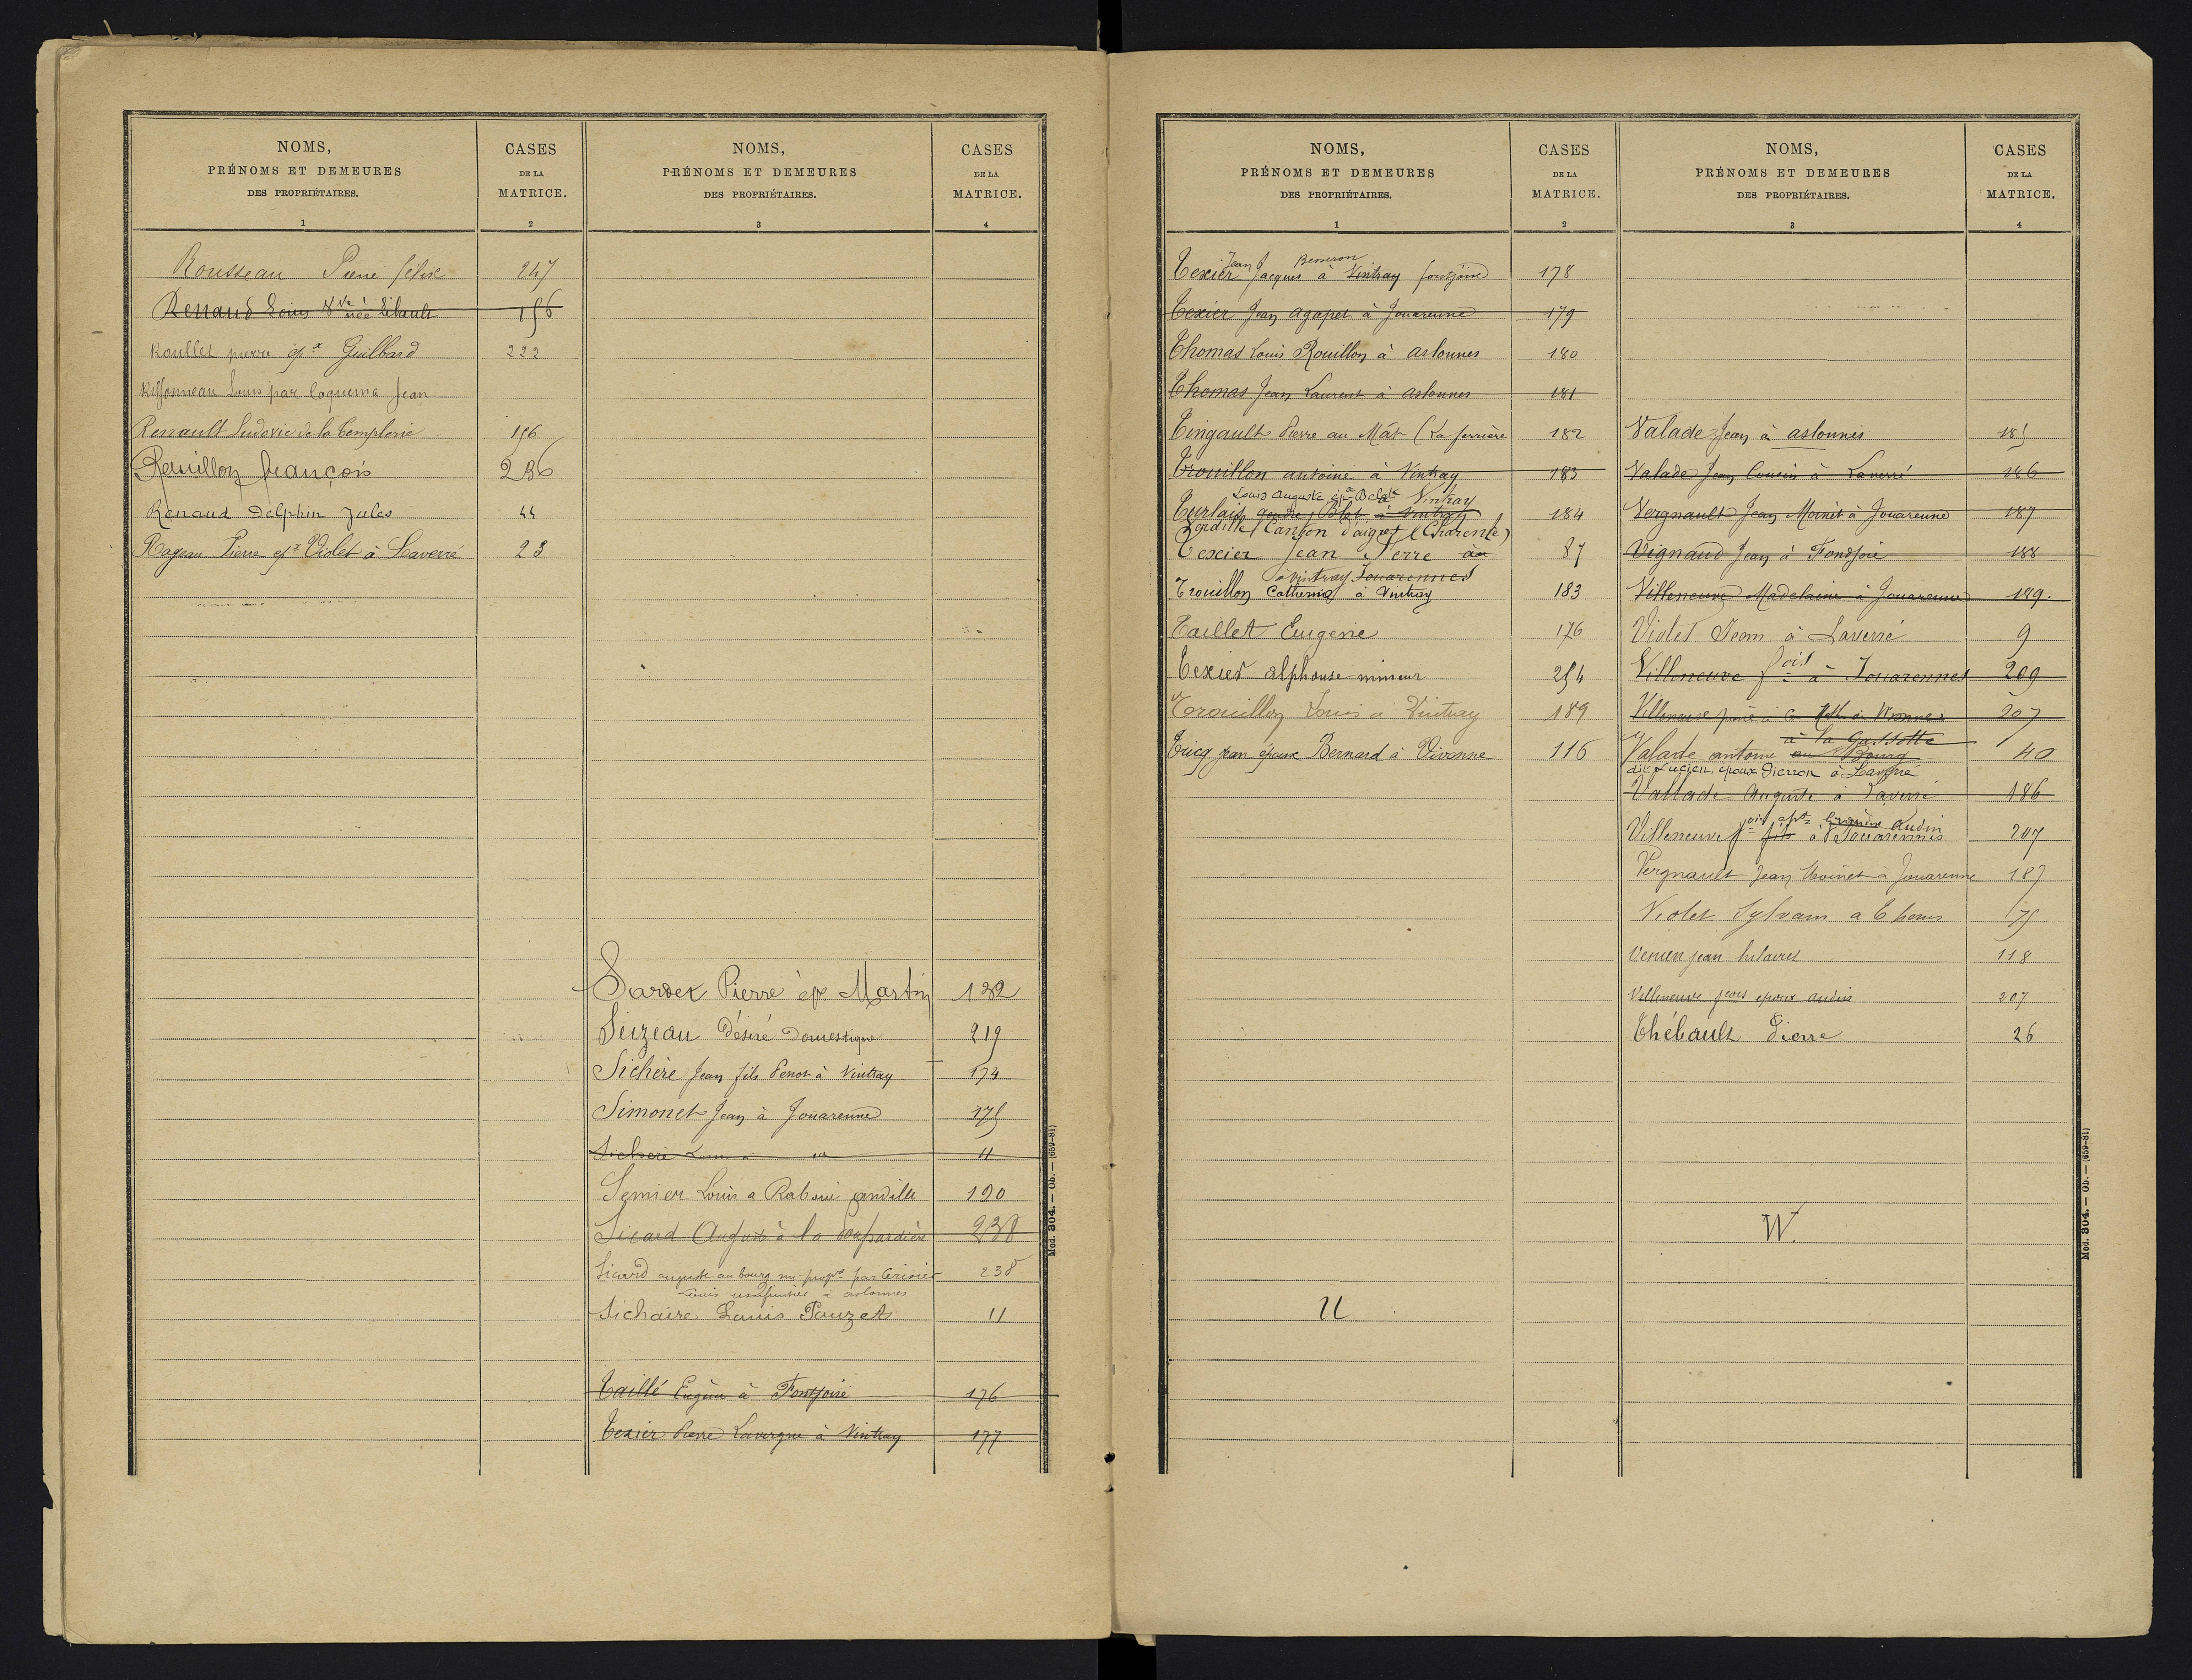 NOMS,
PRÉNOMS ET DEMEURES
DES PROPRIÉTAIRES.
1
CASES
DE LA
MATRICE.
2
Rousseau Pierre félix 247
Renaud Louis Vve née Tibault 156
Roullet pierre épx Guilbard 222
Rissonneau Louis par Coquema Jean
Renault Ludovic de la Templerie 156
Reuillon françois 236
Renaud Delphin Jules 44
Rageau Pierre epx Violet à Laverré 23
NOMS,
PRÉNOMS ET DEMEURES
DES PROPRIÉTAIRES.
3
CASES
DE LA
MATRICE.
4
Sardet Pierre ép. Martin 132
Seizeau Désiré Domestique 219
Sichère Jean fils Penot à Vintray 174
Simonet Jean à Jouarenne 175
Sichère Louis à id 11
Semier Louis a andille 190
Sicard Auguste à la 238
Sicard auguste au bourg nu-propre par 238
Louis usufruitier à aslonnes
Sichaire Louis Pauzet 11
Taillé Eugène à Fontjoise 176
Texier Pierre Lavergne à Vintray 177
Mod. 304. — Ob. — (659-81)
NOMS,
PRÉNOMS ET DEMEURES
DES PROPRIÉTAIRES.
1
CASES
DE LA
MATRICE.
2
Jean Besseron
Texier Jacques à Vintray fontjoise 178
Texier Jean agapet à Jouarenne 179
Thomas Louis Rouillon à aslonnes 180
Thomas Jean Laurent à aslonnes 181
Tingault Pierre au Mât (La ferrière 182
Trouillon antoine à Vintray 183
Louis Auguste épx Belet à Vintray
Turlais gendre Blet à Vintray 184
Canton d'aigre (Charente)
Texier Jean Pierre au 87
à Vintray Jouarennes
Trouillon Catherine à Vintray 183
Taillet Eugenie 176
Texier alphonse mineur 254
Trouillon Louis à Vintray 189
Tricq jean époux Bernard à Vivonne 116
U
NOMS,
PRÉNOMS ET DEMEURES
DES PROPRIÉTAIRES.
3
CASES
DE LA
MATRICE.
4
Valade Jean à aslonnes 185
Valade Jean Cousin à Laverré 186
Vergnault Jean Moinet à Jouarenne 187
Vignaud Jean à Fondjoie 188
Villeneuve Madelaine à Jouarenne 189.
Violet Jean à Laverré 9
Villeneuve fois à Jouarennes 209
Villeneuve 207
à la Gassotte
Valade antoine au Bourg 40
dit Lucien, époux Pierron à Laverré
Vallade Auguste à Laverré 186
Villeneuve fois fils à Jouarennes Audin 207
Vergnault Jean Moinet à Jouarenne 187
Violet Sylvain a 75
jean hilaires 118
Villeneuve fcois époux audin 207
Thébault Pierre 26
W.
Mod. 304. — Ob. — (659-81)